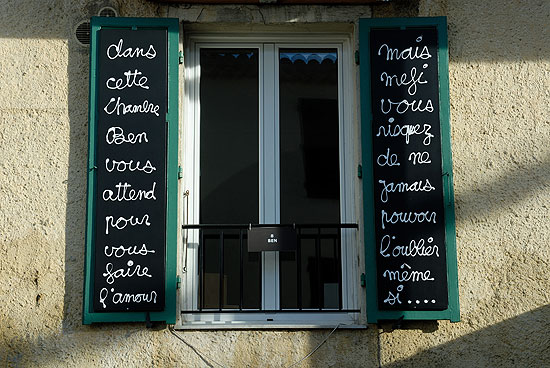 dans
cette
chambre
Ben
vous
attend
pour
vous
faire
l'amour
BEN
mais
mefi
vous
risquez
de ne
jamais
pouvoir
l'oublier
même
si.....